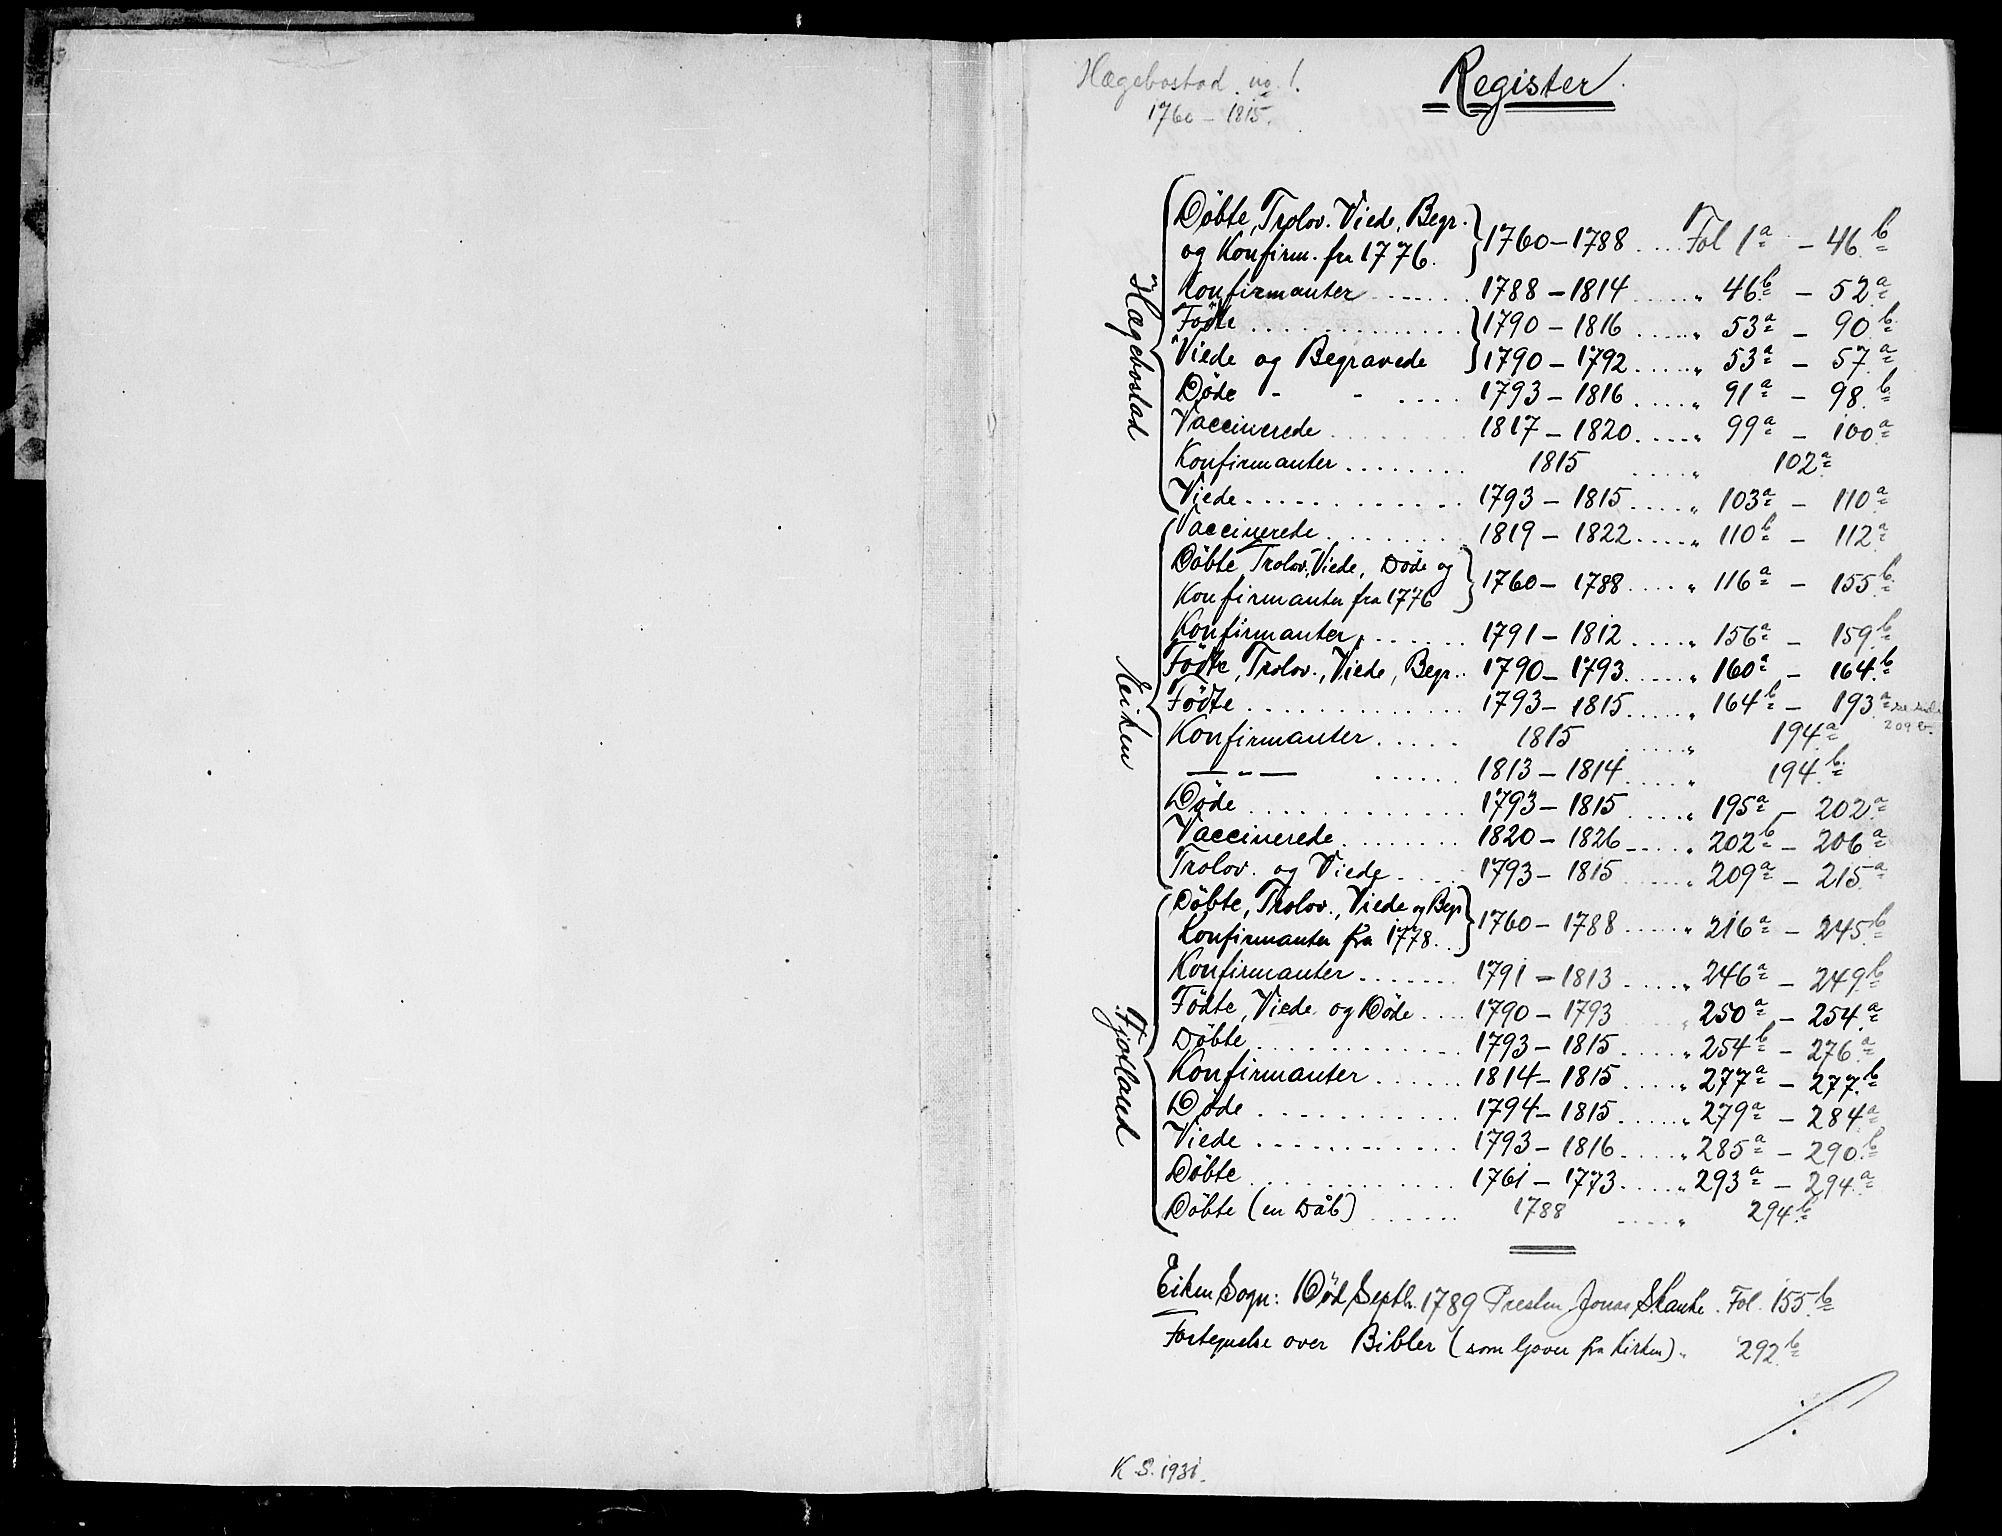 Hægebostad. no. 1.
1760 – 1815.
Register.
Hægebostad
Döbte, Trolov. Viede, Begr. og Konfirm. fra 1776. 1760 – 1788 .... Fol 1a – 46b
Konfirmanter ...... 1788 – 1814 ..... " 46b – 52a
Födte ............. 1790 – 1816 ..... " 53a – 90b
Viede og Begravede 1790 – 1792 ..... " 53a – 57a
Døde - - .... 1793 – 1816 ..... " 91a – 98b
Vaccinerede ........ 1817 – 1820 ..... " 99a – 100a
Konfirmanter ........ 1815 ..... " 102a
Viede ............. 1793 – 1815 ..... " 103a – 110a
Eiken
Vaccinerede ......... 1819 – 1822 ..... " 110b – 112a
Döbte Trolov. Viede, Døde og Konfirmanter fra 1776 1760 – 1788 ..... " 116a – 155b
Konfirmanter ....... 1791 – 1812 ..... " 156a – 159b
Födte, Trolov., Viede, Begr. .. 1790 – 1793 ..... " 160a – 164b
Födte ............. 1793 – 1815 ..... " 164b – 193a
209 b.
Konfirmanter ..... 1815 ..... " 194a
— " — ...... 1813 – 1814 ..... " 194b
Døde ............. 1793 – 1815 ..... " 195a – 202a
Vaccinerede ........ 1820 – 1826 ..... " 202b – 206a
Trolov. og Viede ..... 1793 – 1815 ..... " 209a – 215a
Fjotland
Döbte, Trolov., Viede og Begr Konfirmanter fra 1778 ... 1760 – 1788 ..... " 216a – 245b
Konfirmanter ...... 1791 – 1813 ..... " 246a – 249b
Födte, Viede og Døde .... 1790 – 1793 " 250a – 254a
Döbte ............ 1793 – 1815 ..... " 254b – 276a
Konfirmanter ...... 1814 – 1815 ..... " 277a – 277b
Døde ............ 1794 – 1815 ..... " 279a – 284a
Viede ............ 1793 – 1816 ..... " 285a – 290b
Döbte ............ 1761 – 1773 ..... " 293a – 294a
Döbte (en Dåb) ...... 1788 ..... " 294b
Eiken Sogn: Död Septb. 1789 Presten Jonas Skanke. Fol. 155b
Fortegnelse over Bibler (som Gaver fra Kirken) " 292b
K. S. 1931.